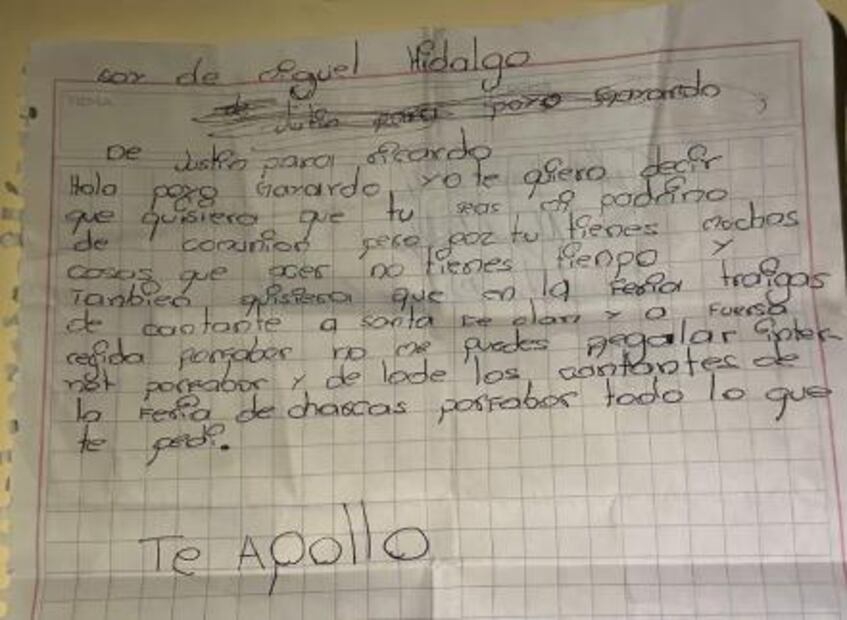 sor de miguel Hidalgo
de Justin para para Gerardo
De Justin para ricardo
Hola para Gerardo, yo te qiero decir
que quisiera que tu seas mi padrino
de comunion pero poz tu tienes muchas
cosas que acer no tienes tienpo y
Tanbien qisiera que en la Feria traigas
de cantante a santa Fe clan y a Fuersa
regida porfabor no me puedes regalar inter-
net porfabor y de lode los cantantes de
la Feria de chascas porfabor todo lo que
te pedi.
Te Apollo